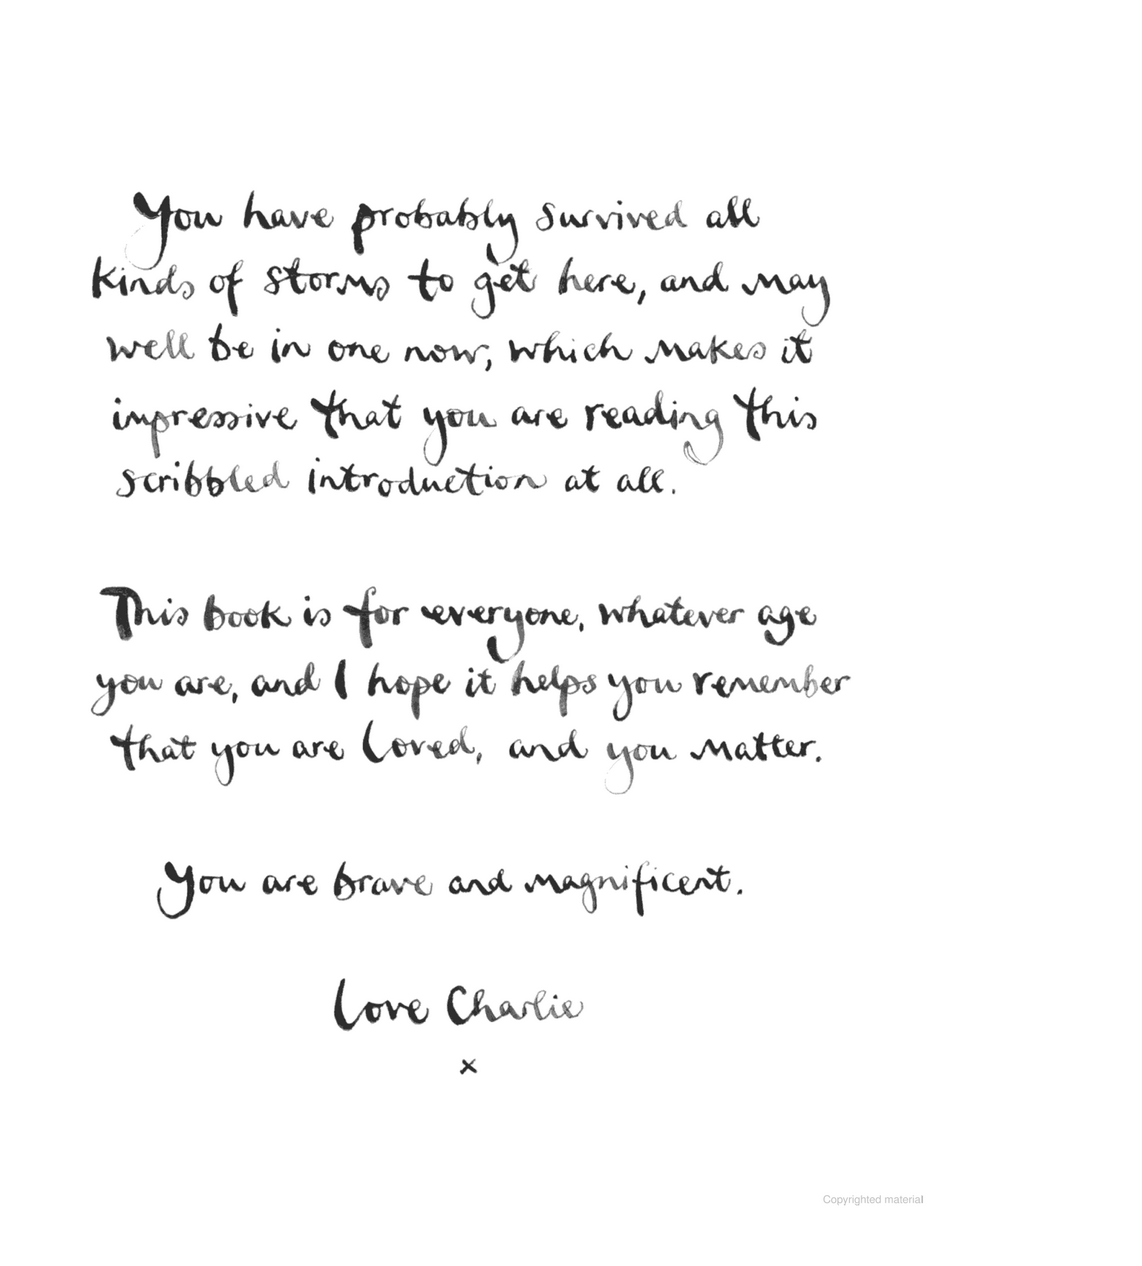 You have probably survived all
kinds of storms to get here, and may
well be in one now, which makes it
impressive that you are reading this
scribbled introduction at all.
This book is for everyone, whatever age
you are, and I hope it helps you remember
that you are loved, and you matter.
You are brave and magnificent.
Love Charlie
x
Copyrighted material